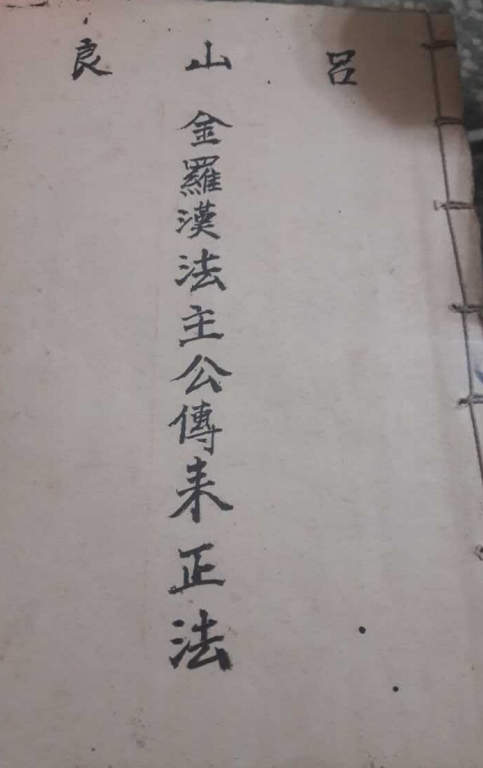 呂山良
金羅漢法主公傳来正法